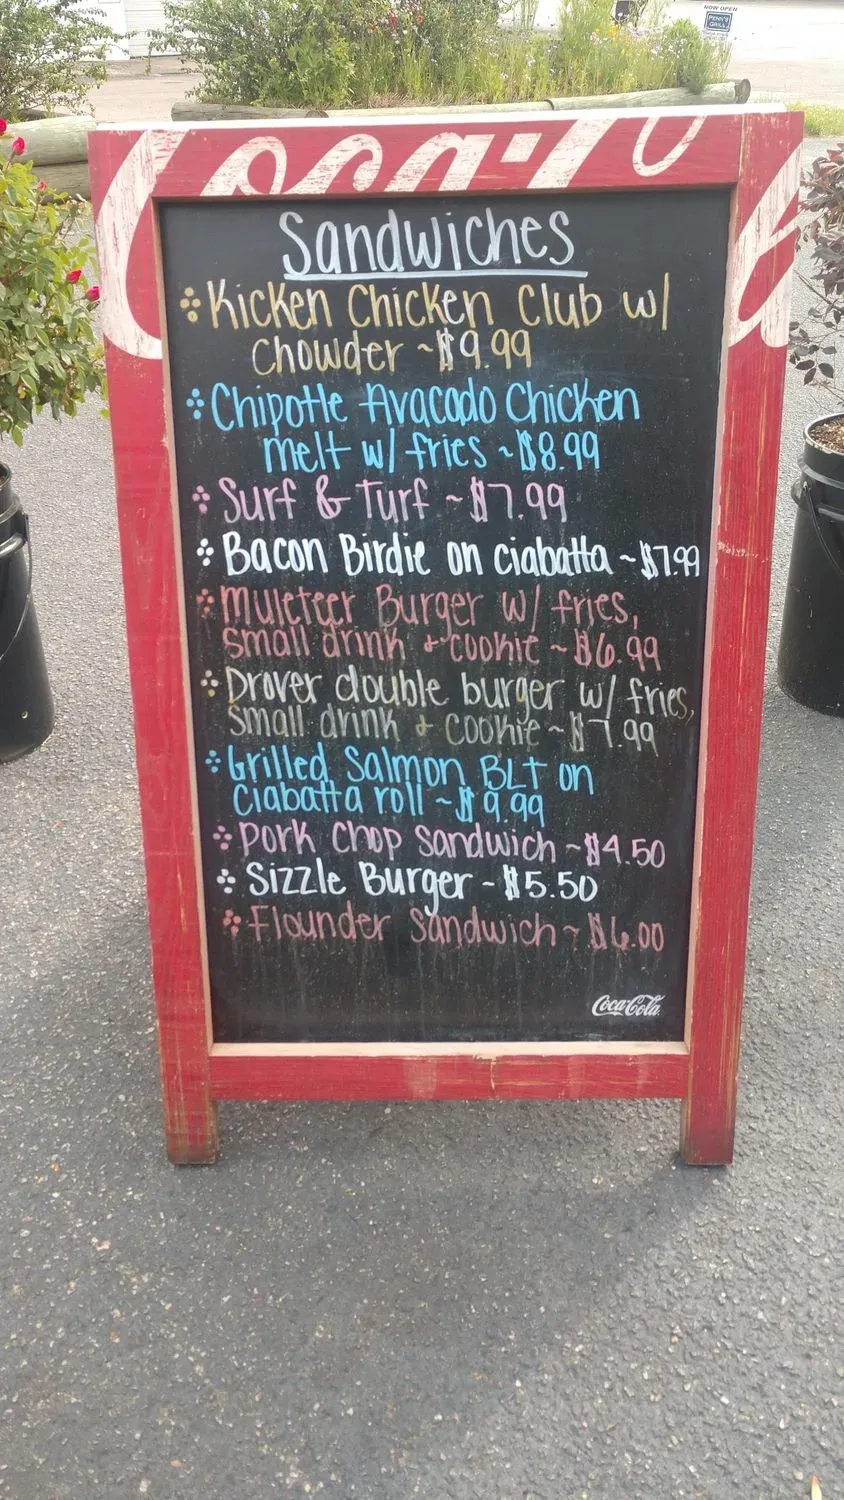 NOW OPEN
PENN'S
GRILL
Coca-Co
Sandwiches
Kicken Chicken Club w/
Chowder ~ $9.99
Chipotle Avacado Chicken
melt w/ fries ~ $8.99
Surf & Turf ~ $7.99
Bacon Birdie on ciabatta ~ $7.99
Muleteer Burger w/ fries,
small drink + cookie ~ $6.99
Drover double burger w/ fries,
small drink + cookie ~ $7.99
Grilled Salmon BLT on
Ciabatta roll ~ $9.99
Pork Chop Sandwich ~ $4.50
Sizzle Burger - $5.50
Flounder Sandwich ~ $6.00
Coca-Cola